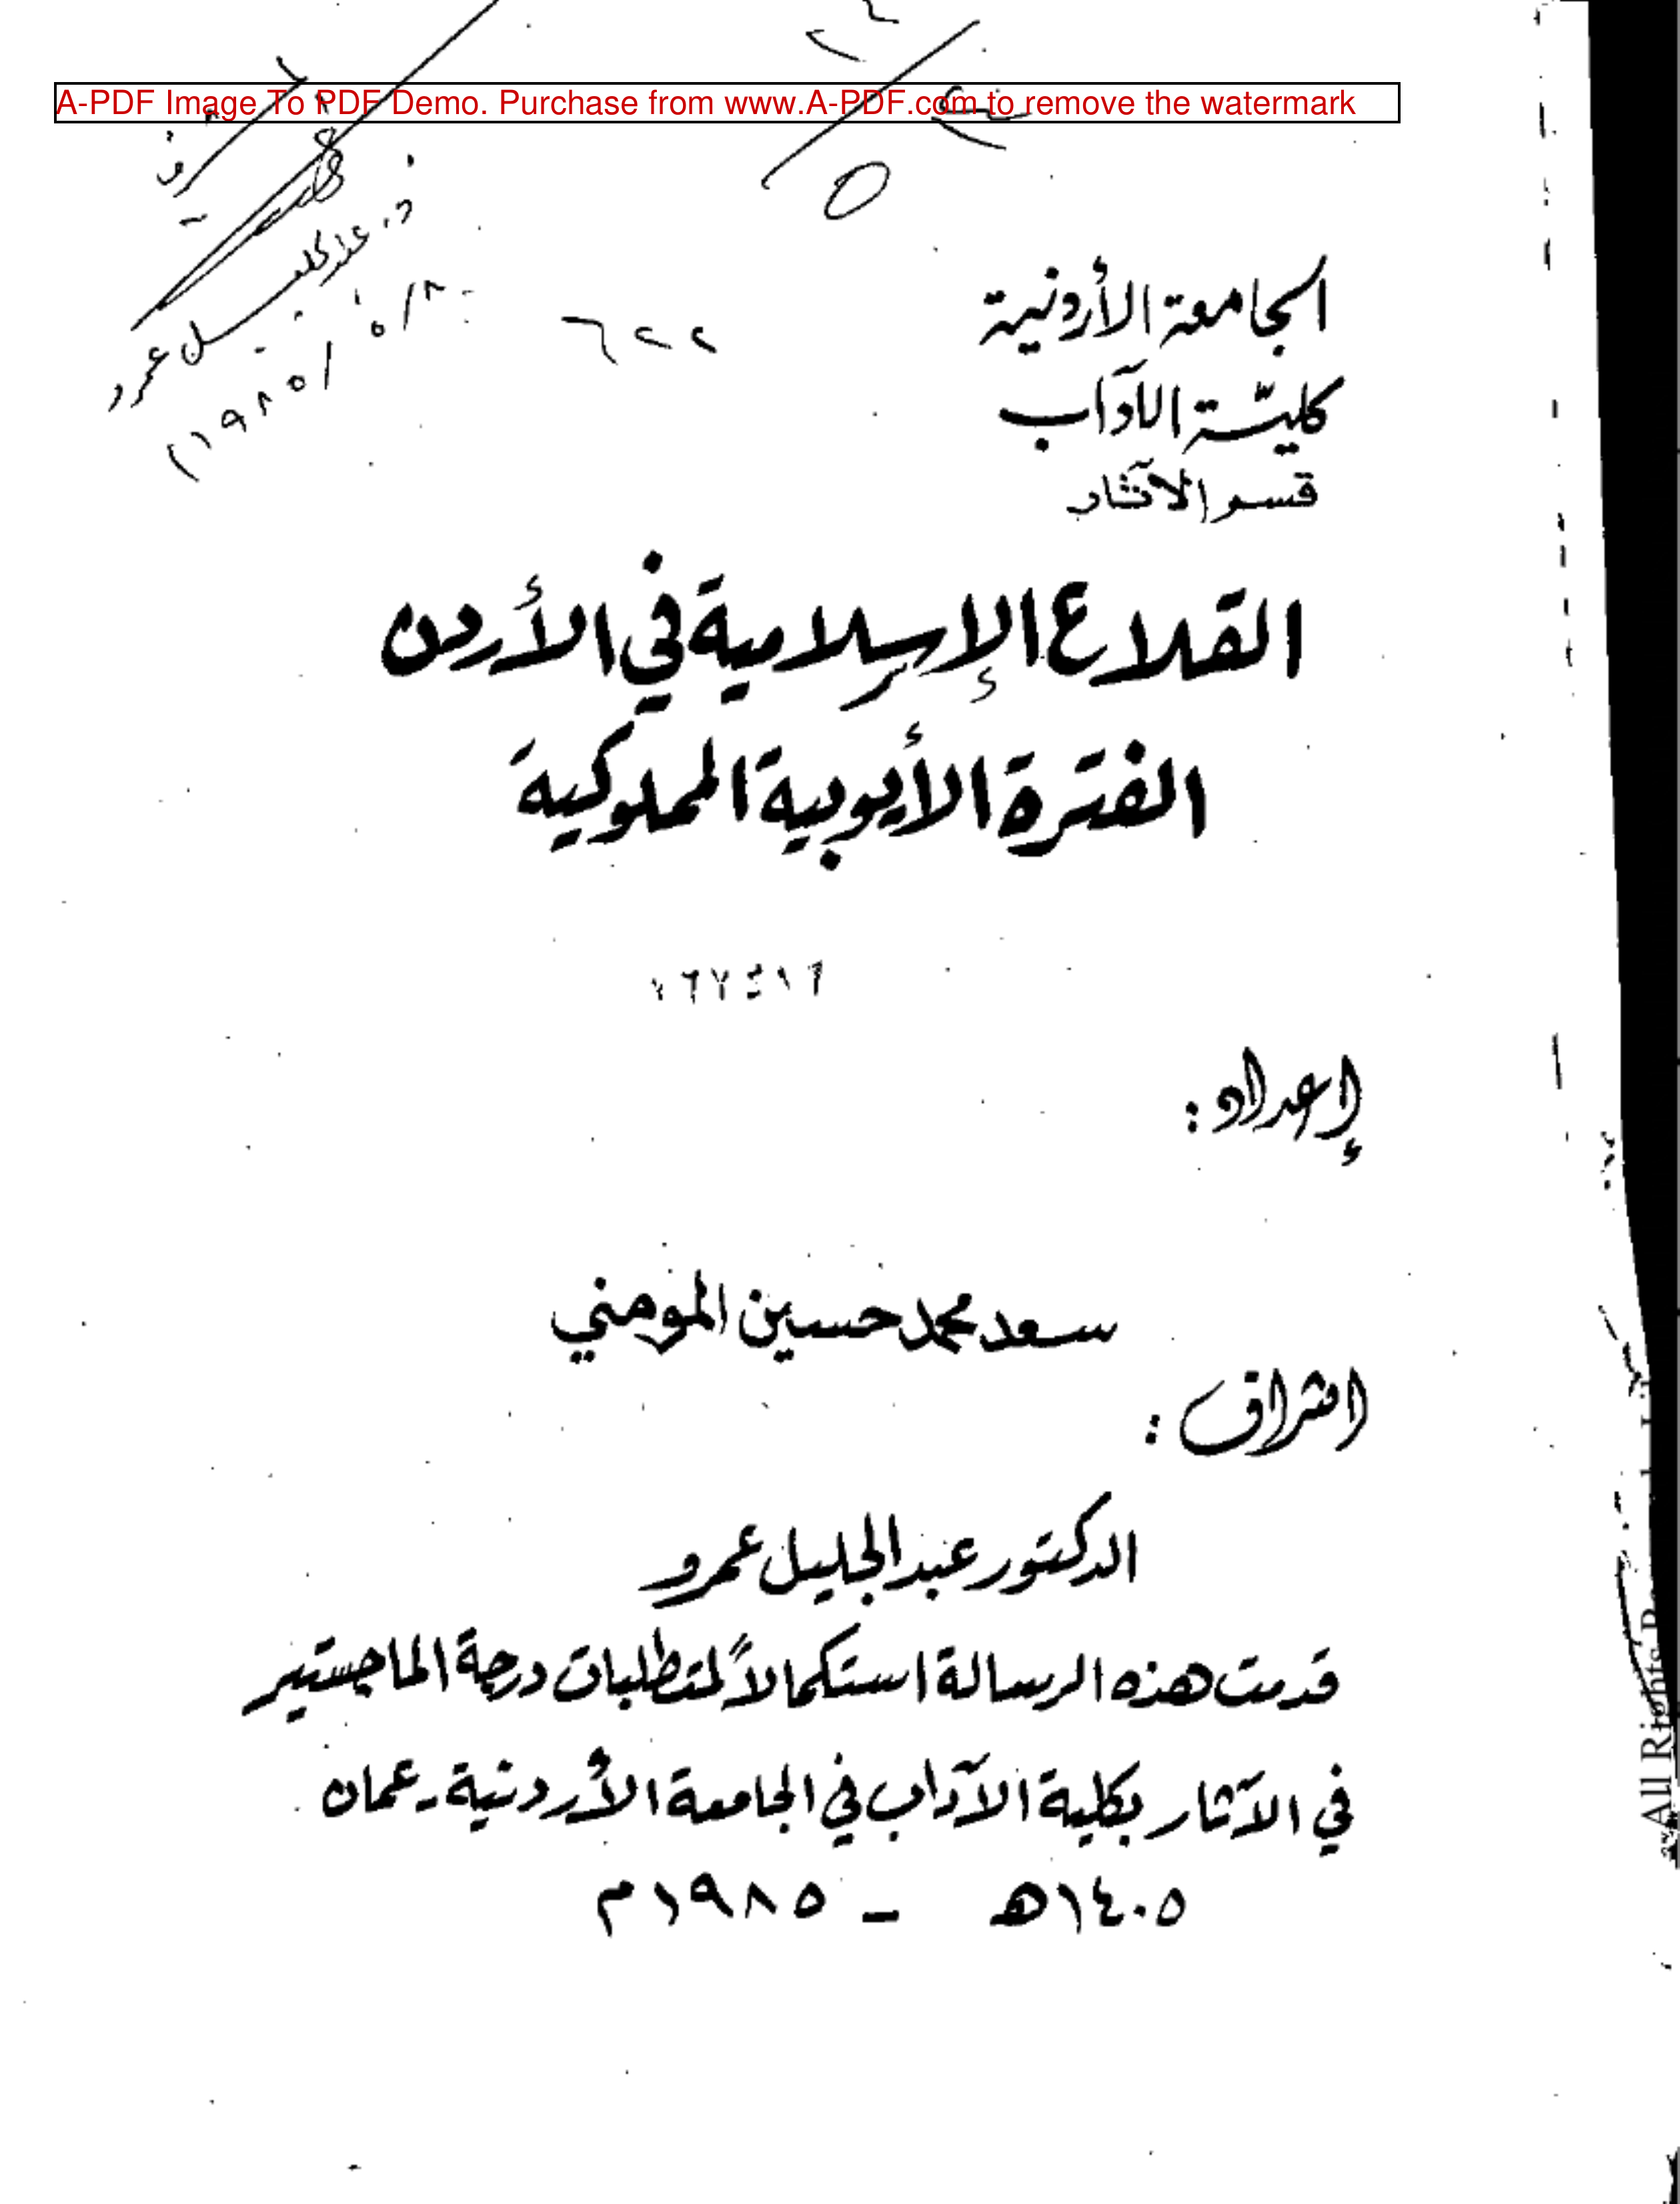 A-PDF Image To PDF Demo. Purchase from www.A-PDF.com to remove the watermark
د. عبدالجليل عمرو
١٩٨٥/٥/٢٠
٦٢٢
الجامعة الأردنية
كليّة الآداب
قسم الآثار
القلاع الإسلامية في الأردن
الفترة الأيوبية المملوكية
إعداد:
سعد محمد حسين المومني
اشراف:
الدكتور عبدالجليل عمرو
قدمت هذه الرسالة استكمالاً لمتطلبات درجة الماجستير
في الآثار بكلية الآداب في الجامعة الأردنية - عمان
١٤٠٥ه - ١٩٨٥م
All Rights